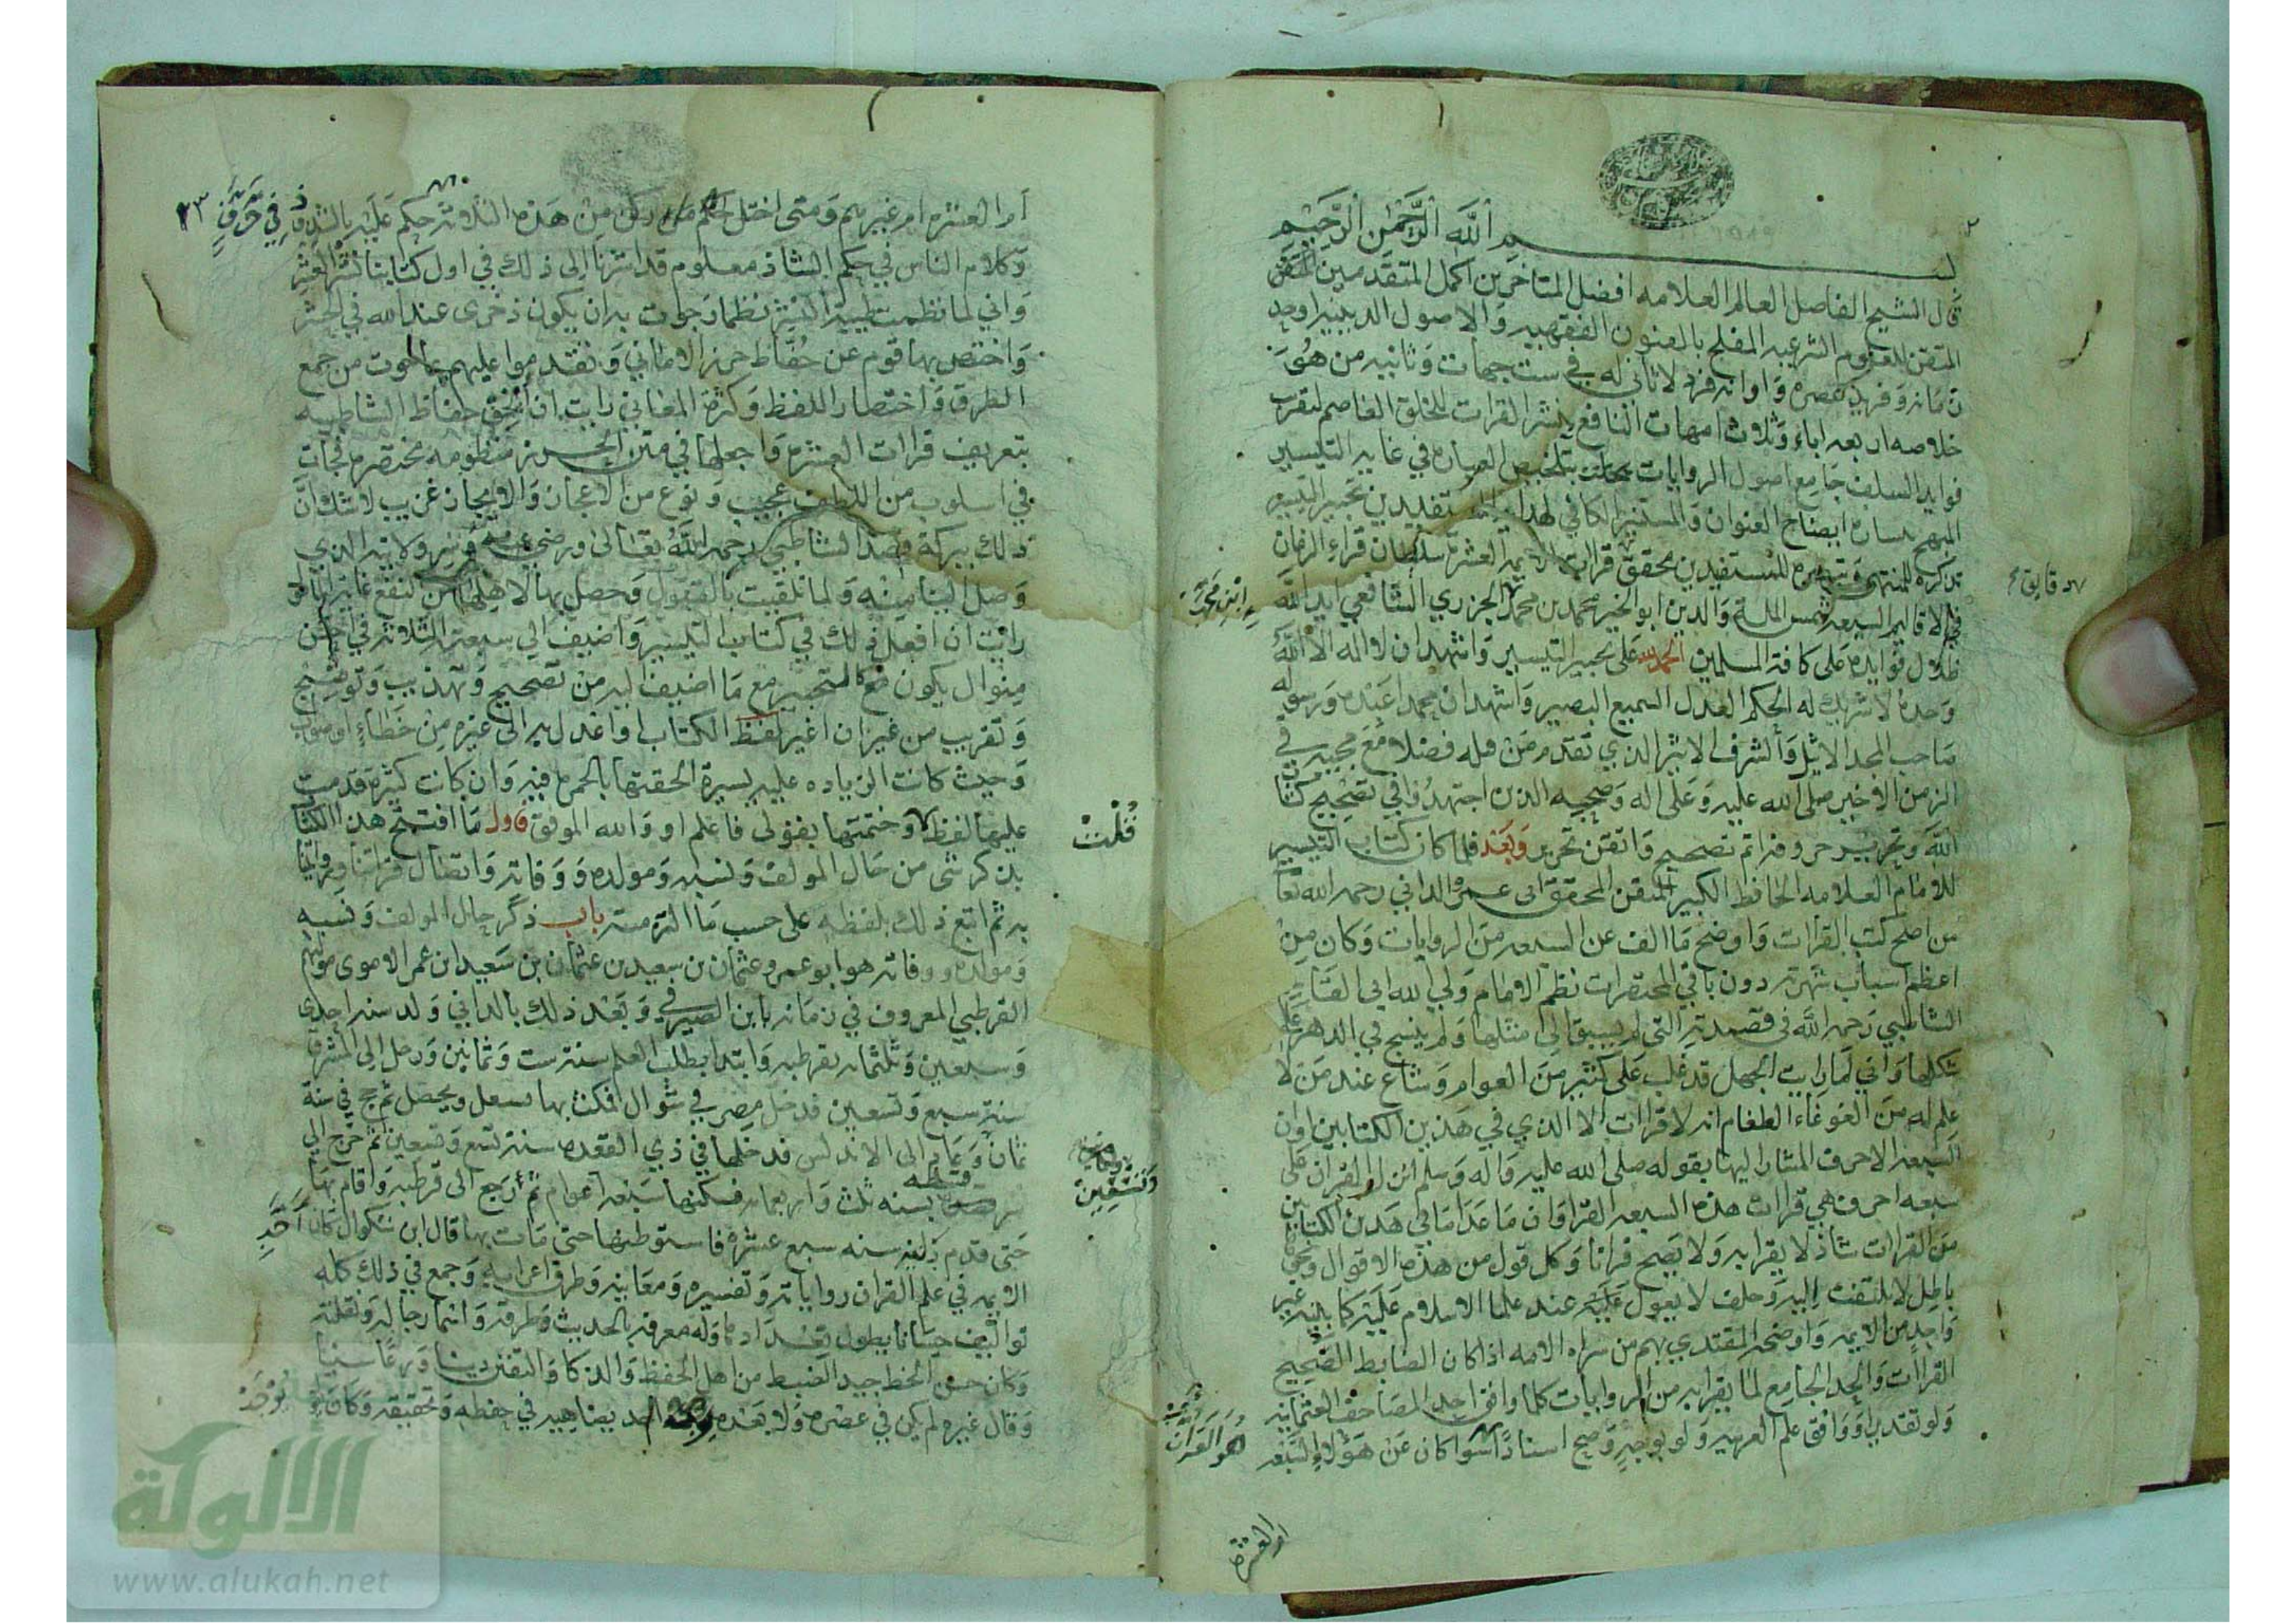 بسم الله الرحمن الرحيم
قال الشيخ الفاضل العالم العلامه افضل المتاخرين اكمل المتقدمين المتقن
المتقن للعلوم الشرعيه المفلح بالفنون الفقهيه والاصول الدينيه اوحد
زمانه وفريد عصره واوانه فرد لا ثاني له في ست جهات وثانيه من هو
خلاصه اربعه اباء وثلاث امهات النافع بنشر القرات للخلق العاصم لتقرب
فوايد السلف جامع اصول الروايات بتلخيص العباره في غايه التيسير
المبهج بسياره ايضاح العنوان والمستنير الكافي لهدايه المستفيدين تحبير التيسير
تذكره للمنتهى وتبصره للمستفيدين محقق قرات الايمه العشره سلطان قراء الزمان
في الاقاليم السبعه شمس المله والدين ابو الخير محمد بن محمد الجزري الشافعي ايد الله
ظلال فوايده على كافة المسلمين الحمد لله على تحبير التيسير واشهد ان لا اله الا الله
وحده لا شريك له الحكم العدل السميع البصير واشهد ان محمدا عبده ورسوله
صاحب المجد الاثيل والشرف الاثير الذي تقدم من قبله فضلا مع مجييه في
الزمن الاخير صلى الله عليه وعلى اله وصحبه الذين اجتهدوا في تصحيح كتاب
الله وتحرير حروفه اتم تصحيح واتقن تحرير وبعد فلما كان كتاب التيسير
للامام العلامه الحافظ الكبير المتقن المحقق ابى عمرو الداني رحمه الله تعا
من اصح كتب القرات واوضح ما الف عن السبعه من الروايات وكان من
اعظم اسباب شهرته دون باقي المختصرات نظم الامام ولي الله ابي القاسم
الشاطبي رحمه الله في قصيدته التي لم يسبق الى مثلها ولم ينسج في الدهر على
شكلها واني لما رايت الجهل قد غلب على كثير من العوام وشاع عند من لا
علم له من الغوغاء الطغام انه لا قرات الا الذي في هذين الكتابين وان
السبعه الاحرف المشار اليها بقوله صلى الله عليه واله وسلم انزل القران على
سبعه احرف هي قرات هذه السبعه القرا وان ما عدا ما في هذين الكتابين
من القرات شاذ لا يقرا به ولا يصح قرانا وكل قول من هذه الاقوال ونحوه
باطل لا يلتفت اليه وخلف لا يعول عليه عند علما الاسلام عليه كما بينه غير
واحد من الايمه واوضحه المقتدي بهم من سراه الامه اذا كان الضابط الصحيح
القراات والحد الجامع لما يقرا به من الروايات كلما وافق احد المصاحف العثمانيه
ولو تقديرا ووافق علم العربيه ولو بوجه وصح اسنادا سوا كان عن هؤلاء السبعه
او العشره
ابن محمد
ام العشره ام غيرهم ومتى اختل حكم من ركن من هذه الثلاثه حكم عليه بالشذوذ في حرف
وكلام الناس في حكم الشاذ معلوم قد اشرنا الى ذلك في اول كتابنا نشر العشر
واني لما نظمت طيبة النشر نظما رجوت به ان يكون ذخرى عند الله في الحشر
واختص بها قوم عن حفاظ حرز الاماني وتقدموا عليهم بما حوت من جمع
الطرق واختصار اللفظ وكثرة المعاني رايت ان اتحف حفاظ الشاطبيه
بتعريف قرات العشره واجعلها في متن الحرز منظومه مختصره فجات
في اسلوب من اللطف عجيب ونوع من الاعجاز والايجاز غريب لا شك ان
ذلك ببركة قصد الشاطبي رحمه الله تعالى ورضي عنه ولايته الذي
وصل الينا منه ولما تلقيت بالقبول وحصل بها لاهلها من النفع غاية المامول
رايت ان افعل ذلك في كتاب التيسير واضيف الى سبعته الثلاثه في احسن
منوال يكون مع كالتحبير مع ما اضيف اليه من تصحيح وتهذيب وتوضيح
وتقريب من غير ان اغير لفظ الكتاب او اعدل به الى غيره من خطاء او صواب
وحيث كانت الزياده عليه يسيرة الحقتها بالحمره فيه وان كانت كثيرة قدمت
عليها لفظ قلت وختمتها بقولى فاعلم او والله الموفق فاول ما افتتح هذا الكتا
بذكر شى من حال المولف ونسبه ومولده ووفاته واتصال قراتنا وروايتنا
به ثم اتبع ذلك بلفظه على حسب ما التزمته باب ذكر حال المولف ونسبه
ومولده ووفاته هو ابو عمرو عثمان بن سعيد بن عثمان بن سعيد ابن عمر الاموى مولاهم
القرطبي المعروف في زمانه بابن الصيرفي وبعد ذلك بالداني ولد سنه احدى
وسبعين وثلثمايه بقرطبه وابتدا بطلب العلم سنة ست وثمانين ورحل الى المشرق
سنة سبع وتسعين فدخل مصر في شوال فمكث بها سنه ويحصل ثم حج في سنة
ثمان وعاد الى الاندلس فدخلها في ذي القعده سنة تسع وتسعين ثم خرج الى
سرقسطه بسنه ثلث واربعمايه فسكنها سبعه اعوام ثم رجع الى قرطبه واقام بها
حتى قدم دانيه سنه سبع عشره فاستوطنها حتى مات بها قال ابن بشكوال كان احد
الايمه في علم القران رواياته وتفسيره ومعانيه وطرقه واعرابه وجمع في ذلك كله
تواليف حسانا يطول تعدادها وله معرفه بالحديث وطرقه واسما رجاله ونقلته
وكان حسن الخط جيد الضبط من اهل الحفظ والذكا والتفنن دينا ورعا سنيا
وقال غيره لم يكن في عصره ولا بعده احد يضاهيه في حفظه وتحقيقه وكان
قلت
وتسعين
الألوكة
www.alukah.net